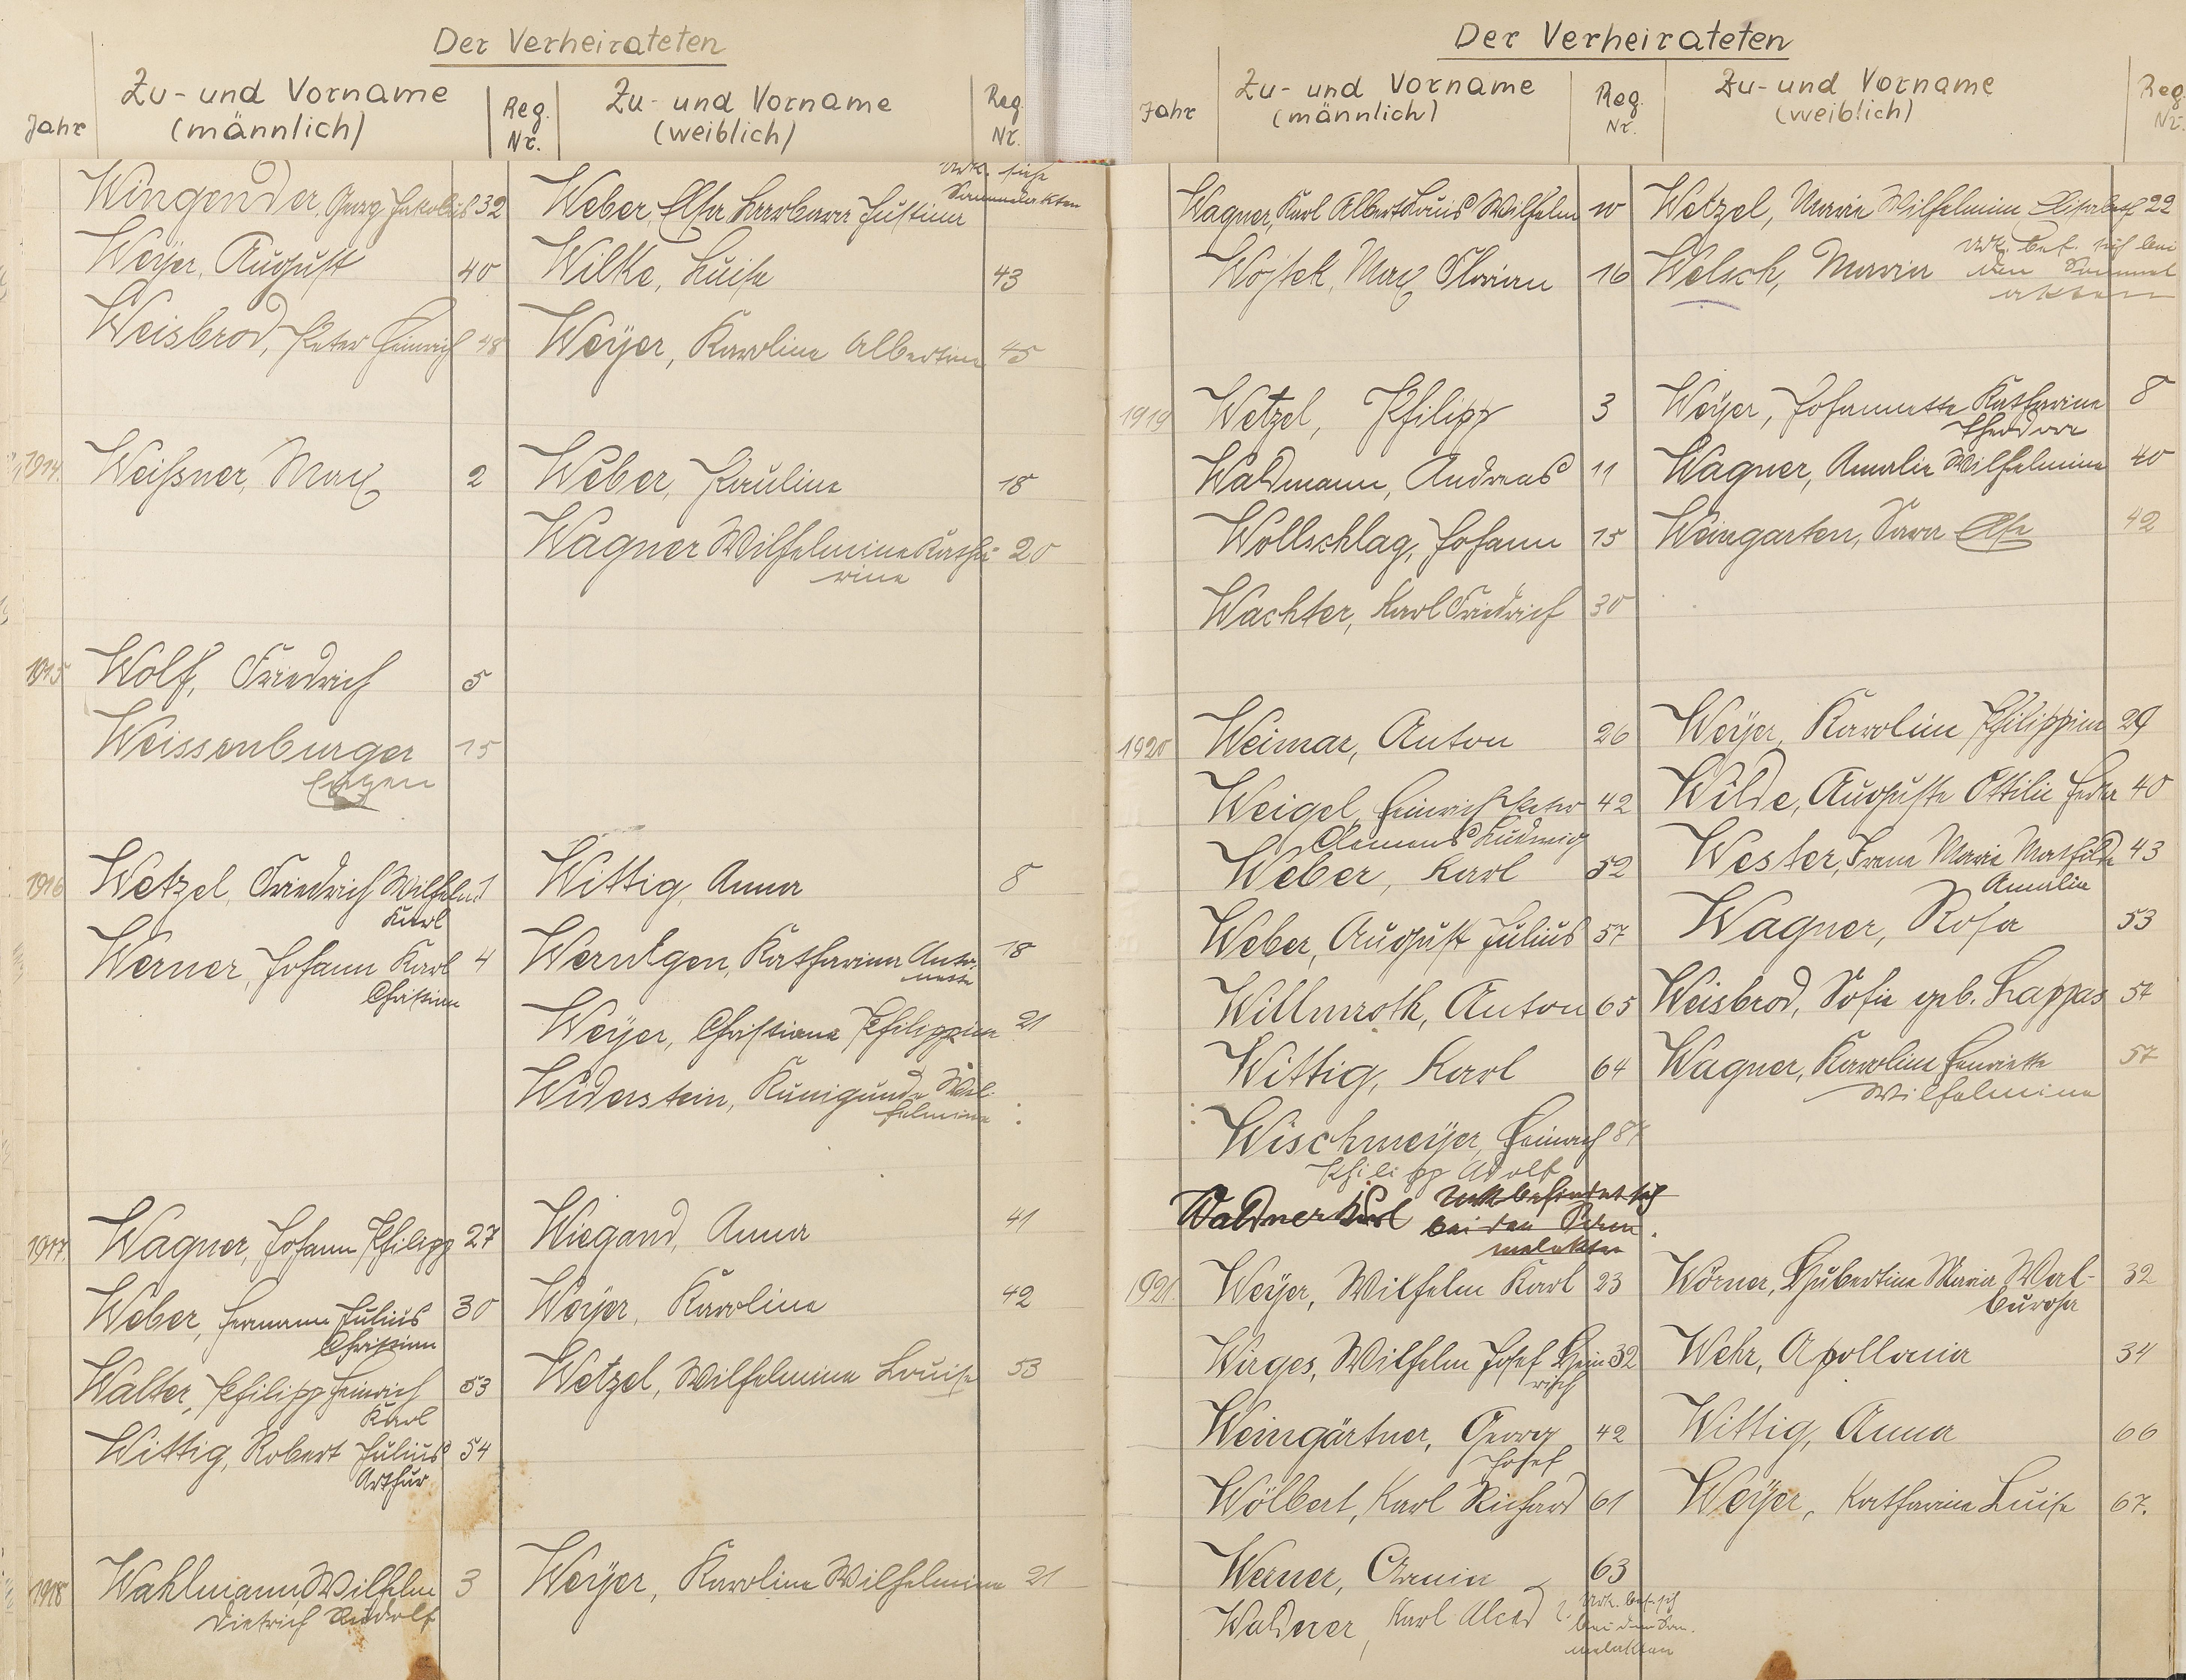 Der Verheirateten
Jahr
Zu- und Vorname
(männlich)
Reg.
Nr.
Zu- und Vorname
(weiblich)
Reg.
Nr.
Wingender, Georg Jakobus 32 Weber, Elsa Barbara Justina Urk. siehe
Sammelakten
Weyer, August 40 Wilke, Luise 43
Weisbrod, Peter Heinrich 48 Weyer, Karoline Albertine 45
1914. Weißner, Max 2 Weber, Pauline 18
Wagner Wilhelmine Katha- 20
rine
1915 Wolf, Friedrich 5
Weissenburger 15
Eugen
1916 Wetzel, Friedrich Wilhelm 1 Wittig, Anna 8
Karl
Werner, Johann Karl 4 Werntgen, Katharina Anto- 18
Christian nette
Weyer, Christiane Philippine 21
Widerstein, Kunigunde Wil-
helmine
1917. Wagner, Johann Philipp 27 Wiegand, Anna 41
Weber, Hermann Julius 30 Weyer, Karoline 42
Christian
Walter, Philipp Heinrich 53 Wetzel, Wilhelmine Louise 53
Karl
Wittig, Robert Julius 54
Arthur
1918 Wahlmann, Wilhelm 3 Weyer, Karoline Wilhelmine 21
Dietrich Rudolf
Der Verheirateten
Jahr
Zu- und Vorname
(männlich)
Reg.
Nr.
Zu- und Vorname
(weiblich)
Reg.
Nr.
Wagner, Karl Albert Louis Wilhelm 10 Wetzel, Marie Wilhelmine Elisabeth 22
Wojtek, Max Florian 16 Welsch, Maria Urk. bef. sich bei
den Sammel
akten
1919 Wetzel, Philipp 3 Weyer, Johannette Katharine 8
Theodore
Waldmann, Andreas 11 Wagner, Amalie Wilhelmine 40
Wollschlag, Johann 15 Weingarten, Sara Else 42
Wachter, Karl Friedrich 30
1920 Weimar, Anton 26 Weyer, Karoline Philippine 29
Weigel, Heinrich Peter 42 Wilde, Auguste Ottilie Hedda 40
Clemens Ludwig
Weber, Karl 52 Wester, Irene Marie Mathilde 43
Amalie
Weber, August Julius 57 Wagner, Rosa 53
Willmroth, Anton 65 Weisbrod, Sofie geb. Kappas 54
Wittig, Karl 64 Wagner, Karoline Henriette 57
Wilhelmine
Wischmeyer, Heinrich 87
Philipp Adolf
Waldner Karl Urk befindet sich
bei den Sam
melakten
1921 Weyer, Wilhelm Karl 23 Wörner, Hubertine Maria Wal- 32
burga
Wirges, Wilhelm Josef Hein 32 Wehr, Apollonia 34
rich
Weingärtner, Georg 42 Wittig, Anna 66
Josef
Wölbert, Karl Richard 61 Weyer, Katharine Luise 67.
Werner, Armin 63
Waldner, Karl Urk. bef. sich
bei den Sam-
melakten